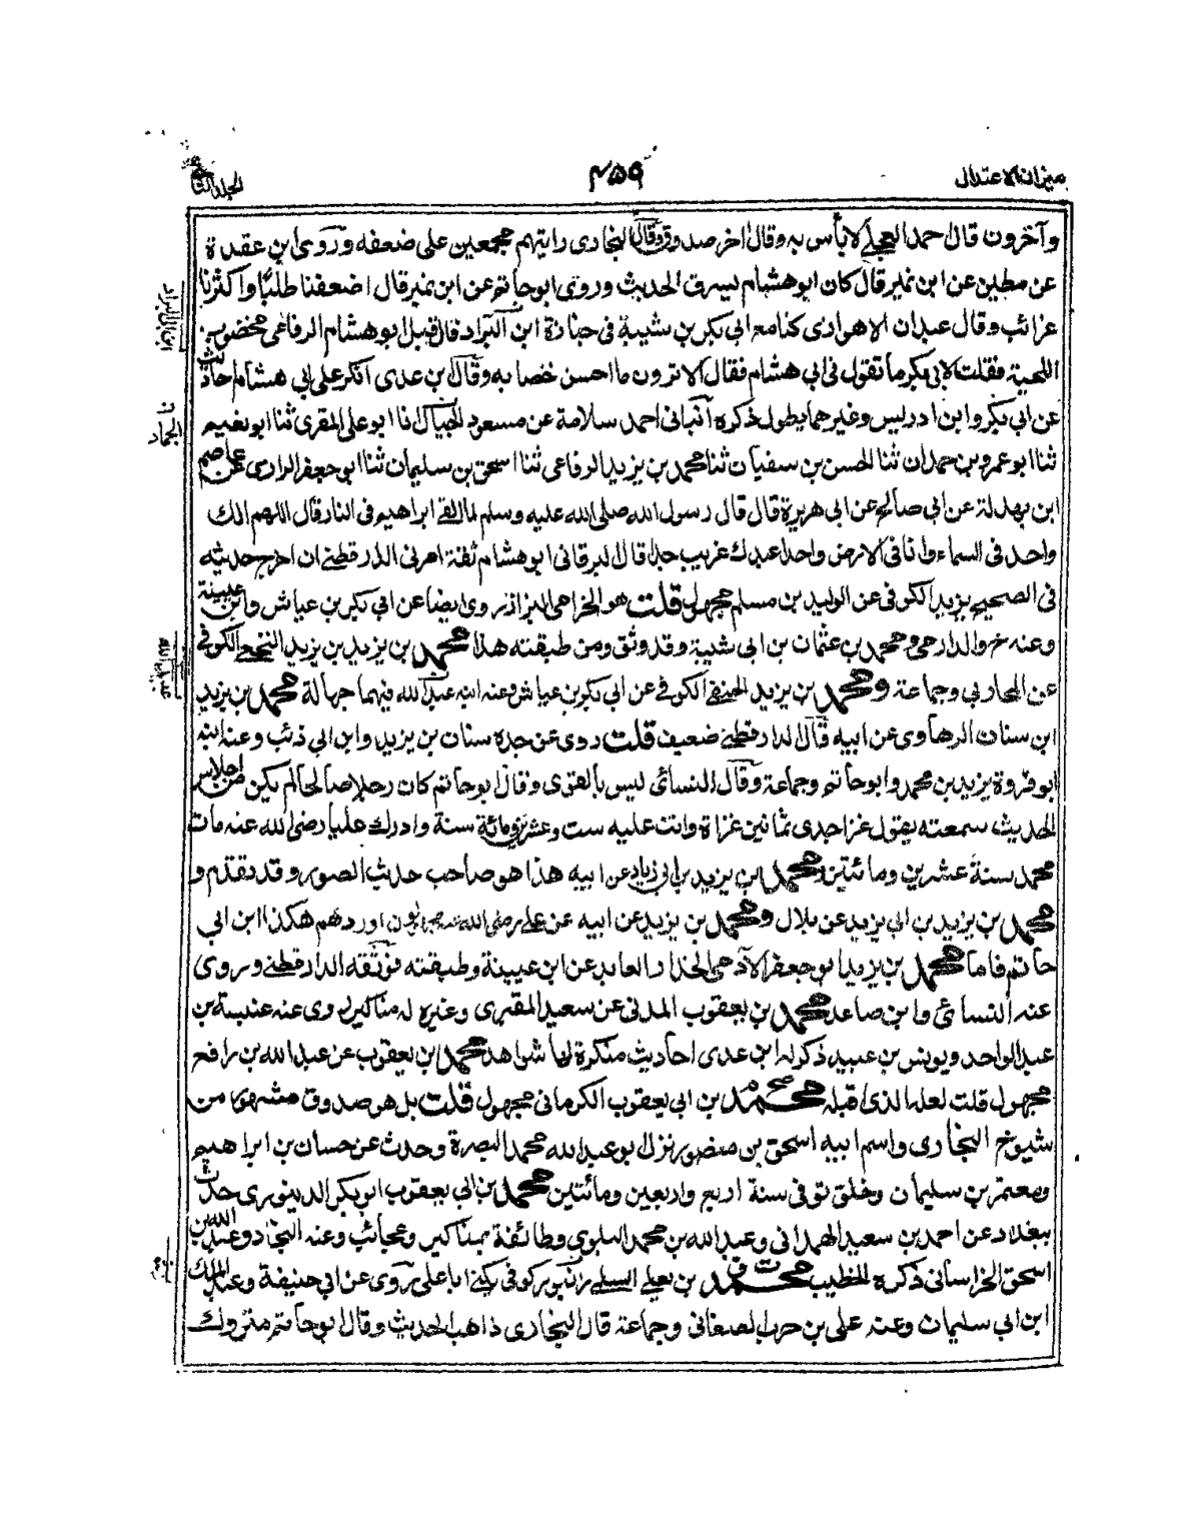 ميزان الاعتدال
٤٥٩
الجلد الثالث
وآخرون قال احمد العجلے لا بأس به وقال آخر صدوق وقال البخاری رايتهم مجمعين علی ضعفه وروی ابن عقدة
عن مطين عن ابن نمير قال كان ابو هشام يسرق الحديث وروی ابو حاتم عن ابن نمير قال اضعفنا طلبًا واكثرنا
غرائب وقال عبدان الاهوازی كنا مع ابی بكر بن شيبة فی جنازة ابن البراد قال قبل ابو هشام الرفاعی مخضوب
اللحية فقلت لابی بكر ما تقول فی ابی هشام فقال الا ترون ما احسن خضابه وقال بن عدی انكر علی ابی هشام احاديث
عن ابی بكر وابن ادريس وغيرهما يطول ذكره انبأنی احمد سلامة عن مسعود الجمال انا ابو علی المقری ثنا ابو نعيم
ثنا ابو عمرو بن حمدان ثنا الحسن بن سفيان ثنا محمد بن يزيد الرفاعی ثنا اسحق بن سليمان ثنا ابو جعفر الرازی عن عاصم
ابن بهدلة عن ابی صالح عن ابی هريرة قال قال رسول الله صلی الله عليه وسلم لما القے ابراهيم فی النار قال اللهم انك
واحد فی السماء وانا فی الارض واحد اعبدك غريب جدا قال البرقانی ابو هشام ثقة امرنی الدارقطنے ان اخرج حديثه
فی الصحيح يزيد الكوفی عن الوليد بن مسلم مجهول قلت هو الخزاعی البزاز روی ايضا عن ابی بكر بن عياش وابن عيينة
وعنه خ والدارمی ومحمد بن عثمان بن ابی شيبة وقد وثق ومن طبقته هذا محمد بن يزيد بن يزيد النخعے الكوفی
عن المحاربی وجماعة ومحمد بن يزيد الحنفے الكوفے عن ابی بكر بن عياش وعنه ابنه عبد الله فيهما جهالة محمد بن يزيد
ابن سنان الرهاوی عن ابيه قال الدارقطنے ضعيف قلت روی عن جده سنان بن يزيد وابن ابی ذئب وعنه ابنه
ابو فروة يزيد بن محمد وابو حاتم وجماعة وقال النسائی ليس بالقوی وقال ابو حاتم كان رجلا صالحا لم يكن من احلاس
الحديث سمعته يقول غزا جدی ثمانين غزاة واتت عليه ست وعشرين ومائة سنة وادرك عليا رضی الله عنه مات
محمد سنة عشرين ومائتين محمد بن يزيد بن ابی زياد عن ابيه هذا هو صاحب حديث الصور وقد تقدم و
محمد بن يزيد بن ابی يزيد عن بلال ومحمد بن يزيد عن ابيه عن علے رضی الله عنه مجهولون اوردهم هكذا ابن ابی
حاتم فاما محمد بن يزيد ابو جعفر الآدمی الخراز العابد عن ابن عيينة وطبقته فوثقه الدارقطنے وروی
عنه النسائی وابن صاعد محمد بن يعقوب المدنی عن سعيد المقبری وغيره له مناكير روی عنه عنبسة بن
عبد الواحد ويونس بن عبيد ذكر له ابن عدی احاديث منكرة لها شواهد محمد بن يعقوب عن عبد الله بن رافع
مجهول قلت لعله الذی قبله محمد بن ابی يعقوب الكرمانی مجهول قلت بل هو صدوق مشهور من
شيوخ البخاری واسم ابيه اسحق بن منصور نزل ابو عبد الله محمد البصرة وحدث عن حسان بن ابراهيم
ومعتمر بن سليمان وخلق توفی سنة اربع واربعين ومائتين محمد بن ابی يعقوب ابو بكر الدينوری حدث
ببغداد عن احمد بن سعيد الهمدانی وعبد الله بن محمد البلوی وطائفة بمناكير وعجائب وعنه النجاد وعبد الله بن
اسحق الخراسانی ذكره الخطيب محمد بن يعلے السلمے زنبور كوفی يكنے ابا علی روی عن ابی حنيفة وعبد الملك
ابن ابی سليمان وعنه علی بن حرب الصغانی وجماعة قال البخاری ذاهب الحديث وقال ابو حاتم متروك